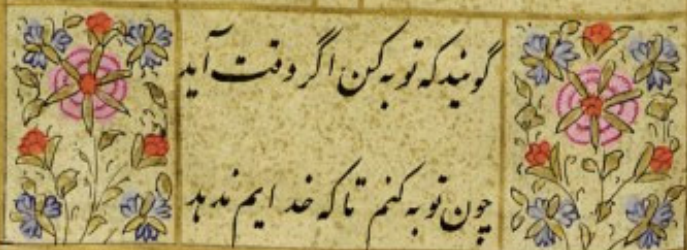 گویند که توبه کن اگر وقت آید
چون توبه کنم تا که خدایم ندهد